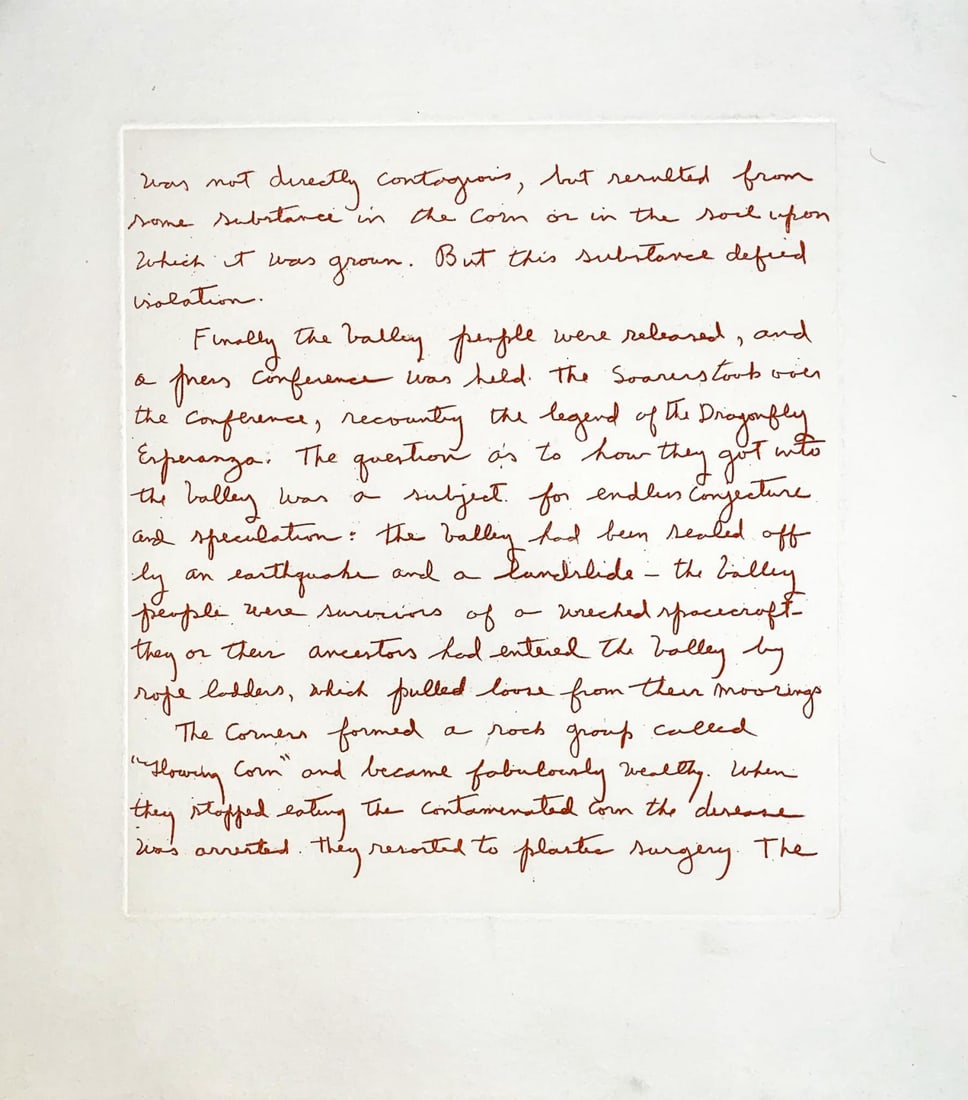 was not directly contagious, but resulted from
some substance in the Corn or in the soil upon
which it was grown. But this substance defied
isolation.
Finally the Valley people were released, and
a press conference was held. The Soarers took over
the conference, recounting the legend of the Dragonfly
Esperanza. The question as to how they got into
the Valley was a subject for endless conjecture
and speculation: the Valley had been sealed off
by an earthquake and a landslide – the Valley
people were survivors of a wrecked spacecraft –
they or their ancestors had entered the Valley by
rope ladders, which pulled loose from their moorings
The Corners formed a rock group called
"Glowing Corn" and became fabulously wealthy. When
they stopped eating the contaminated Corn the disease
was arrested. They resorted to plastic surgery. The